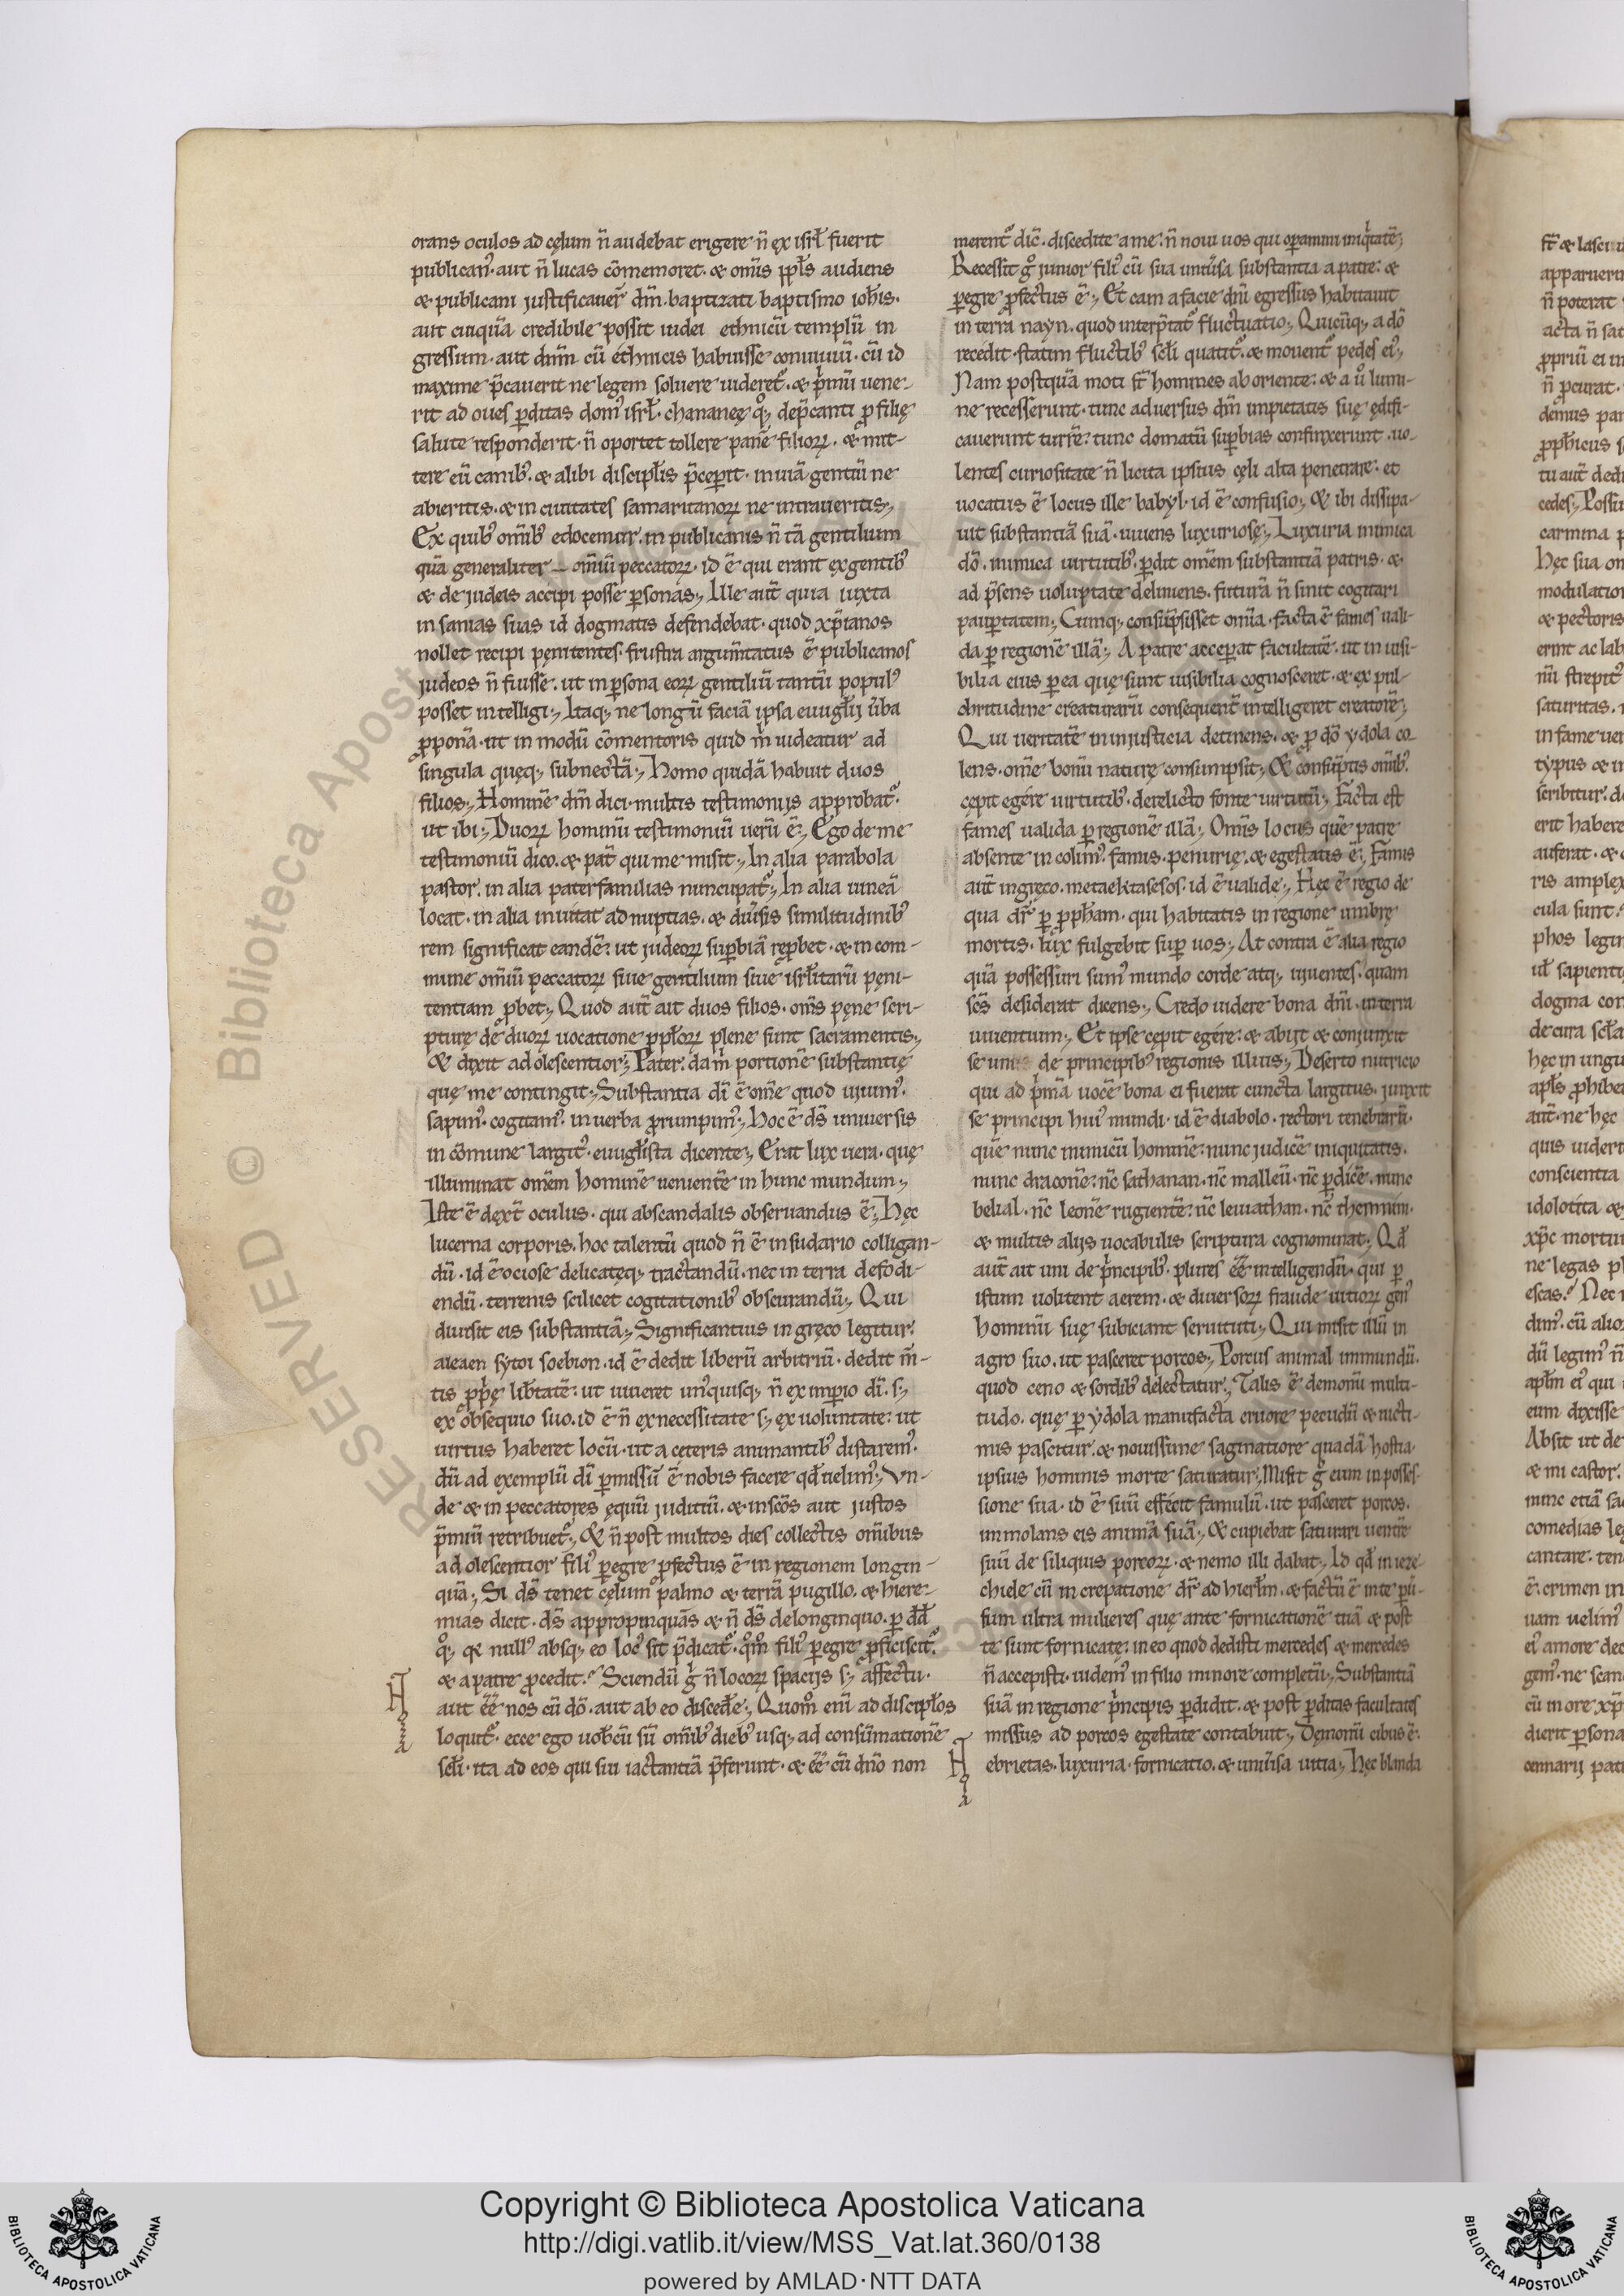 orans oculos ad cęlum ñ audebat erigere ñ ex isrł fuerit
publican᾽. aut ñ lucas cōmemoret. & om̄s ppłs audiens
& publicani justificauer̄ dm̄. baptizati baptismo ioħis.
aut cuiquā credibile possit uideri ethnicū templū in
gressum. aut dnm̄ cū ethnicis habuisse conuiuiū. cū id
maxime p̄cauerit ne legem soluere uideret᷑. & p̍mū uene-
rit ad oues ꝑditas dom᾽ isrł. chananeę q̊ꝫ dep̄canti ꝓ filię
salute responderit. ñ oportet tollere panē filioꝝ. & mit-
tere eū canibꝰ. & alibi discipłis p̄ceꝑit. in uiā gentiū ne
abieritis. & in ciuitates samaritanoꝝ ne intraueritis;
Ex quibꝰ om̄ibꝰ edocemur. in publicanis ñ tā gentilium
quā generaliter om̄iū peccatoꝝ. id ē qui erant ex gentibꝰ
& de judeis accipi posse ꝑsonas; Ille aut̄ quia iuxta
insanias suas id dogmatis defendebat. quod xp̄ianos
nollet recipi pęnitentes. frustra argum̄tatus ē publicanos
judeos ñ fuisse. ut in ꝑsona eoꝝ gentiliū tantū populꝰ
posset intelligi; Itaqꝫ ne longū faciā ipsa euugłij u̓ba
ꝓponā. ut in modū cōmentoris quid m̍ uideatur ad
singula quęqꝫ subnectā; Homo quidā habuit duos
filios; Hominē dm̄ dici. multis testimonijs approbat᷑.
ut ibi; Duoꝝ hominū testimoniū uerū ē; Ego de me
testimoniū dico. & pat̄ qui me misit; In alia parabola
pastor. in alia paterfamilias nuncupat᷑; In alia uineā
locat. in alia inuitat ad nuptias. & diu̓sis similitudinibꝰ
rem significat eandē: ut judeoꝝ suꝑbiā rep̄bet. & in com-
mune om̄iū peccatoꝝ siue gentilium siue isrłitarū pęni-
tentiam ꝓbet; Quod aut̄ ait duos filios. om̄s pęne scri-
pturę de duoꝝ uocatione ppłoꝝ plene sunt sacramentis;
& dixit adolescentior; Pater. da m̍ portionē substantię
quę me contingit; Substantia di̅ ē om̄e quod uiuim᾽.
sapim᾽. cogitam᾽. in uerba ꝓrumpim᾽; Hoc ē ds̄ uniuersis
in cōmune largit᾽. euugłista dicente; Erat lux uera. quę
illuminat om̄em hominē uenientē in hunc mundum;
Iste ē dext̄ oculus. qui abscandalis obseruandus ē; Hęc
lucerna corporis. hoc talentū quod ñ ē in sudario colligan-
dū. id ē ociose delicateqꝫ tractandū. nec in terra defodi-
endū. terrenis scilicet cogitationibꝰ obscurandū; Qui
diuisit eis substantiā; Significantius in gręco legitur.
aieaen sytoi soebion. id ē dedit liberū arbitriū. dedit m̄-
tis pp̍ę lib̄tatē: ut uiueret un᾽quisqꝫ ñ ex imꝑio di̅. sꝫ
ex obsequio suo. id ē ñ ex necessitate sꝫ ex uoluntate: ut
uirtus haberet locū. ut a ceteris animantibꝰ distarem᾽.
dū ad exemplū di̅ ꝑmissū ē nobis facere qđ uelim᾽; Vn-
de & in peccatores ęquū juditiū. & in scōs aut justos
p̄miū retribuet᷑; & ñ post multos dies collectis om̄ibus
adolescentior fili᾽ ꝑegre ꝓfectus ē in regionem longin-
quā; Si ds̄ tenet cęlum palmo & terrā pugillo. & hiere-
mias dicit. ds̄ appropinquās & ñ ds̄ delonginquo. ꝑ dd̄
q̊ꝫ qꝫ null᾽ absqꝫ eo loc᾽ sit p̄dicat᷑. q̊m̊ fili᾽ ꝑegre ꝓficiscit᷑.
& a patre ꝓcedit? Sciendū g̍ ñ locoꝝ spacijs sꝫ affectu.
aut ēē nos cū dō. aut ab eo discedē; Quom̊ eni̅ ad discipłos
loquit᷑. ecce ego uob̄cū su̅ om̄ibꝰ diebꝰ usqꝫ ad consūmationē
scłi. ita ad eos qui sui iactantiā p̄ferunt. & ēē cū dn̄o non
merent᷑ dic̄. discedite a me. ñ noui uos qui oꝑamini iniq̍tatē;
Recessit g̊ junior fili᾽ cū sua uniu̓sa substantia a patre: &
ꝑegre ꝓfectus ē; Et cain a facie dn̄i egressus habitauit
in terra nayn. quod interp̄tat᷑ fluctuatio; Quicūqꝫ a dō
recedit. statim fluctibꝰ scłi quatit᷑. & mouent᷑ pedes ei᾽;
Nam postquā moti sn̄t homines ab oriente: & a u̓o lumi-
ne recesserunt. tunc aduersus dm̄ impietatis suę ędifi-
cauerunt turrē: tunc domatū suꝑbias confinxerunt. uo-
lentes curiositate ñ licita ipsius cęli alta penetrare: et
uocatus ē locus ille babyl. id ē confusio; & ibi dissipa-
uit substantiā suā. uiuens luxuriose; Luxuria inimica
dō. inimica uirtutibꝰ. ꝑdit omēm substantiā patris. &
ad p̄sens uoluptate deliniens. futurā ñ sinit cogitari
pauꝑtatem; Cumqꝫ consūpsisset omīa. facta ē fames uali-
da ꝑ regionē illā; A patre acceꝑat facultatē. ut inuisi-
bilia eius ꝑ ea quę sunt uisibilia cognosceret. & ex pul-
chritudine creaturarū consequent̄ intelligeret creatorē;
Qui ueritatē in injusticia detinens. & ꝓ dō ydola co-
lens. om̄e bonū naturę consumpsit; & consūptis om̄ibꝰ.
cępit egére uirtutibꝰ. derelicto fonte uirtutū; Facta est
fames ualida ꝑ regionē illā; Om̄is locus quē patre
absente incolim᾽. famis. penurię. & egestatis ē; Famis
aut̄ in gręco. metaektasesos. id ē ualide; Hęc ē regio de
qua dr̄ ꝑ ꝓpħam. qui habitatis in regione umbrę
mortis. lux fulgebit suꝑ uos; At contra ē alia regio
quā possessuri sum᾽ mundo corde atqꝫ uiuentes. quam
scōs desiderat dicens; Credo uidere bona dn̄i. in terra
uiuentium; Et ipse cępit egére. & abijt & conjunxit
se uni de principibꝰ regionis illius; Deserto nutricio
qui ad p̍mā uocē bona ei fuerat cuncta largitus. junxit
se principi hui᾽ mundi. id ē diabolo. rectori tenebrarū.
quē nunc inimicū hominē: nunc judicē iniquitatis.
nunc draconē: nc̄ sathanan. nc̄ malleū. nc̄ ꝑdicē. nunc
belial. nc̄ leonē rugientē: nc̄ leuiathan. nc̄ themnim.
& multis alijs uocabulis scriptura cognominat; Qđ
aut̄ ait uni de p̍ncipibꝰ. plures ēē intelligendū. qui ꝑ
istum uolitent aerem. & diuersoꝝ fraude uitioꝝ gen᾽
hominū suę subiciant seruituti; Qui misit illū in
agro suo. ut pasceret porcos; Porcus animal immundū.
quod ceno & sordibꝰ delectatur; Talis ē demonū multi-
tudo. quę ꝑ ydola manufacta cruore pecudū & uicti-
mis pascitur. & nouissime saginatiore quadā hostia.
ipsius hominis morte saturatur; Misit g̍ eum in posses-
sione sua. id ē suū effécit famulū. ut pasceret porcos.
immolans eis animā suā; & cupiebat saturari uentrē
suū de siliquis porcoꝝ. & nemo illi dabat; Id qđ in ieze-
chiele cū increpatione dr̄ ad hierłm. & factū ē in te ꝑu̓-
sum ultra mulieres quę ante fornicationē tuā & post
te sunt fornicatę: in eo quod dedisti mercedes & mercedes
ñ accepisti. uidem᾽ in filio minore completū; Substantiā
suā in regione p̍ncipis ꝑdidit. & post ꝑditas facultates
missus ad porcos egestate contabuit; Demonū cibus ē.
ebrietas. luxuria. fornicatio. & uniu̓sa uitia; Hęc blanda
Copyright © Biblioteca Apostolica Vaticana
http://digi.vatlib.it/view/MSS_Vat.lat.360/0138
powered by AMLAD·NTT DATA